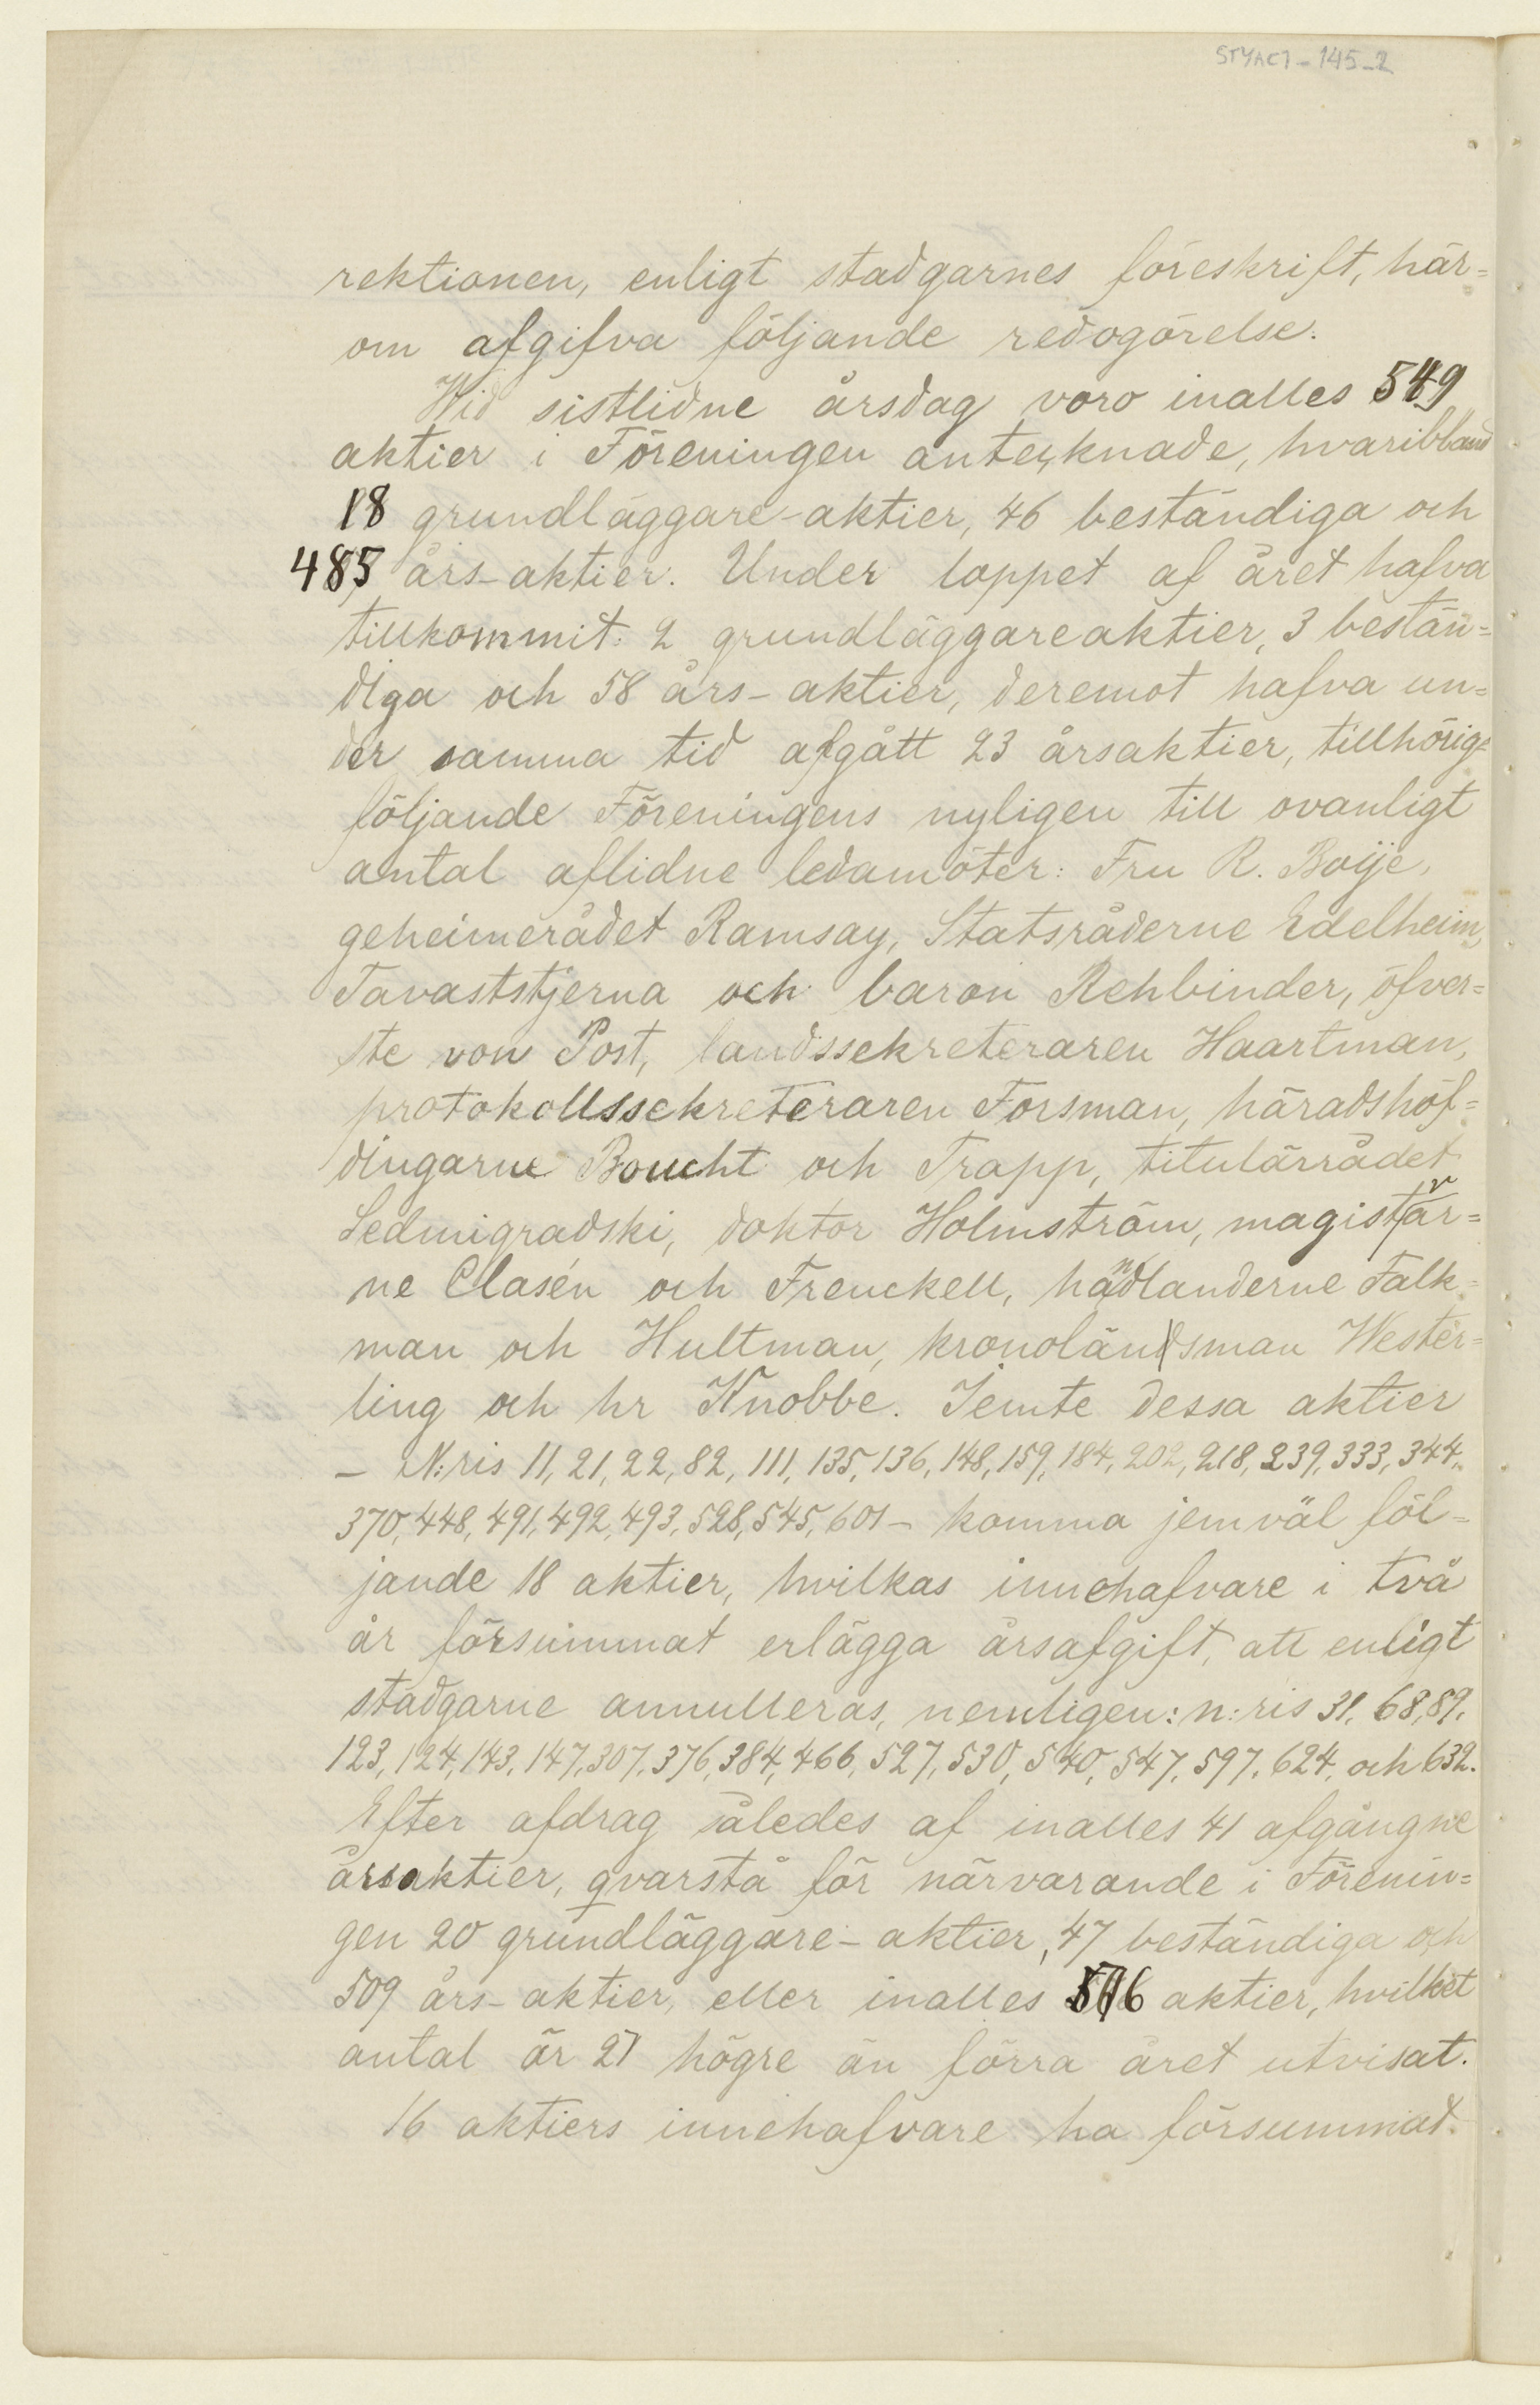 STYAC1-145-2
rektionen, enligt stadgarnes föreskrift, här=
om afgifva följande redogörelse.
Wid sistlidne årsdag voro inalles 549
aktier i Föreningen antecknade, hvaribland
18 grundläggare-aktier, 46 beständiga och
485 års-aktier. Under loppet af året hafva
tillkommit: 2 grundläggareaktier, 3 bestän=
diga och 58 års-aktier, deremot hafva un=
der samma tid afgått 23 årsaktier, tillhörig=
följande Föreningens nyligen till ovanligt
antal aflidne ledamöter: Fru R. Boije,
geheimerådet Ramsay, Statsråderne Edelheim,
Tavaststjerna och baron Rehbinder, öfver=
ste von Post, landssekreteraren Haartman,
protokollssekreteraren Forsman, häradshöf=
dingarne Boucht och Trapp, titulärrådet
Sedmigradski, doktor Holmström, magistrar=
ne Clasén och Frenckell, handlanderne Falk=
man och Hultman, kronolänsman Wester=
ling och hr Knobbe. Jemte dessa aktier
– N:ris 11, 21, 22, 82, 111, 135, 136, 148, 159, 184, 202, 218, 239, 333, 344,
370, 448, 491, 492, 493, 528, 545, 601 – komma jemväl föl=
jande 18 aktier, hvilkas innehafvare i två
år försummat erlägga årsafgift, att enligt
stadgarne annulleras, nemligen: n:ris 31, 68, 89,
123, 124, 143, 147, 307, 376, 384, 466, 527, 530, 540, 547, 597, 624, och 632.
Efter afdrag således af inalles 41 afgångne
årsaktier, qvarstå för närvarande i Förenin=
gen 20 grundläggare-aktier, 47 beständiga och
509 års-aktier, eller inalles 576 aktier, hvilket
antal är 27 högre än förra året utvisat.
16 aktiers innehafvare ha försummat